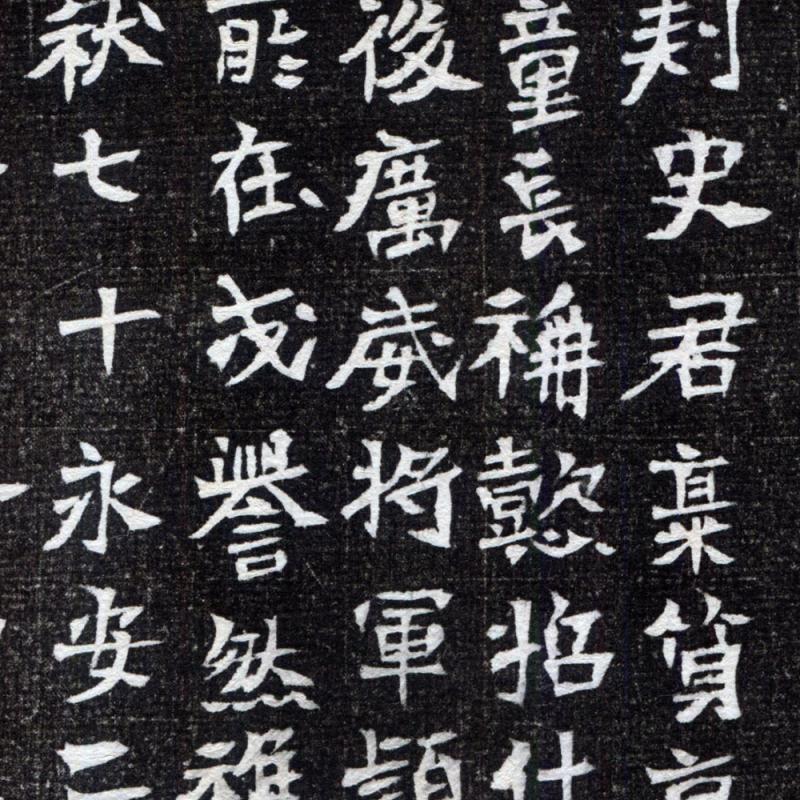 刺史君稟質
童長稱懿招
後廣威將軍
能在戎譽然
秋七十永安二